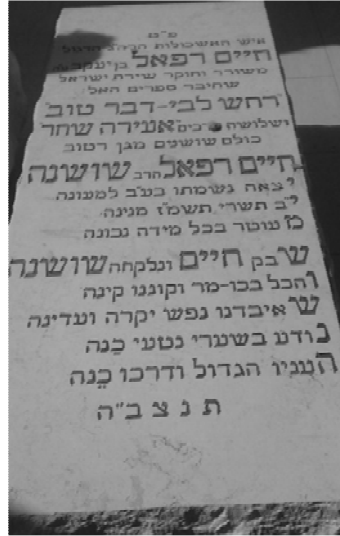 פ״ט
איש האשכולות הרב הגדול
חיים רפאל בן יעקב
משורר וחוקר שירת ישראל
שחיבר ספרים האל
"רחש לבי-דבר טוב"
ושלושה כרכים "אעירה שחר"
כולם שושנים מגן רטוב
חיים רפאל הרב שושנה
יצאה נשמתו בע״ב למעונה
י״ב תשרי תשמ״ז מנינה
מעוטר בכל מידה נכונה
שבק חיים ונלקחה שושנה
והכל בכו-מר וקוננו קינה
ש איבדנו נפש יקרה ועדינה
נודע בשערי נטעי כַנה
העניו הגדול ודרכו כֵנה
ת נ צ ב״ה